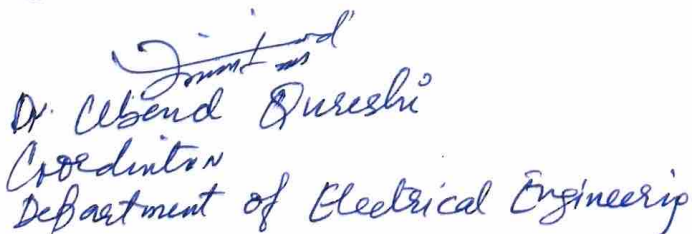 Dr. Qureshi
Coordinator
Department of Electrical Engineering